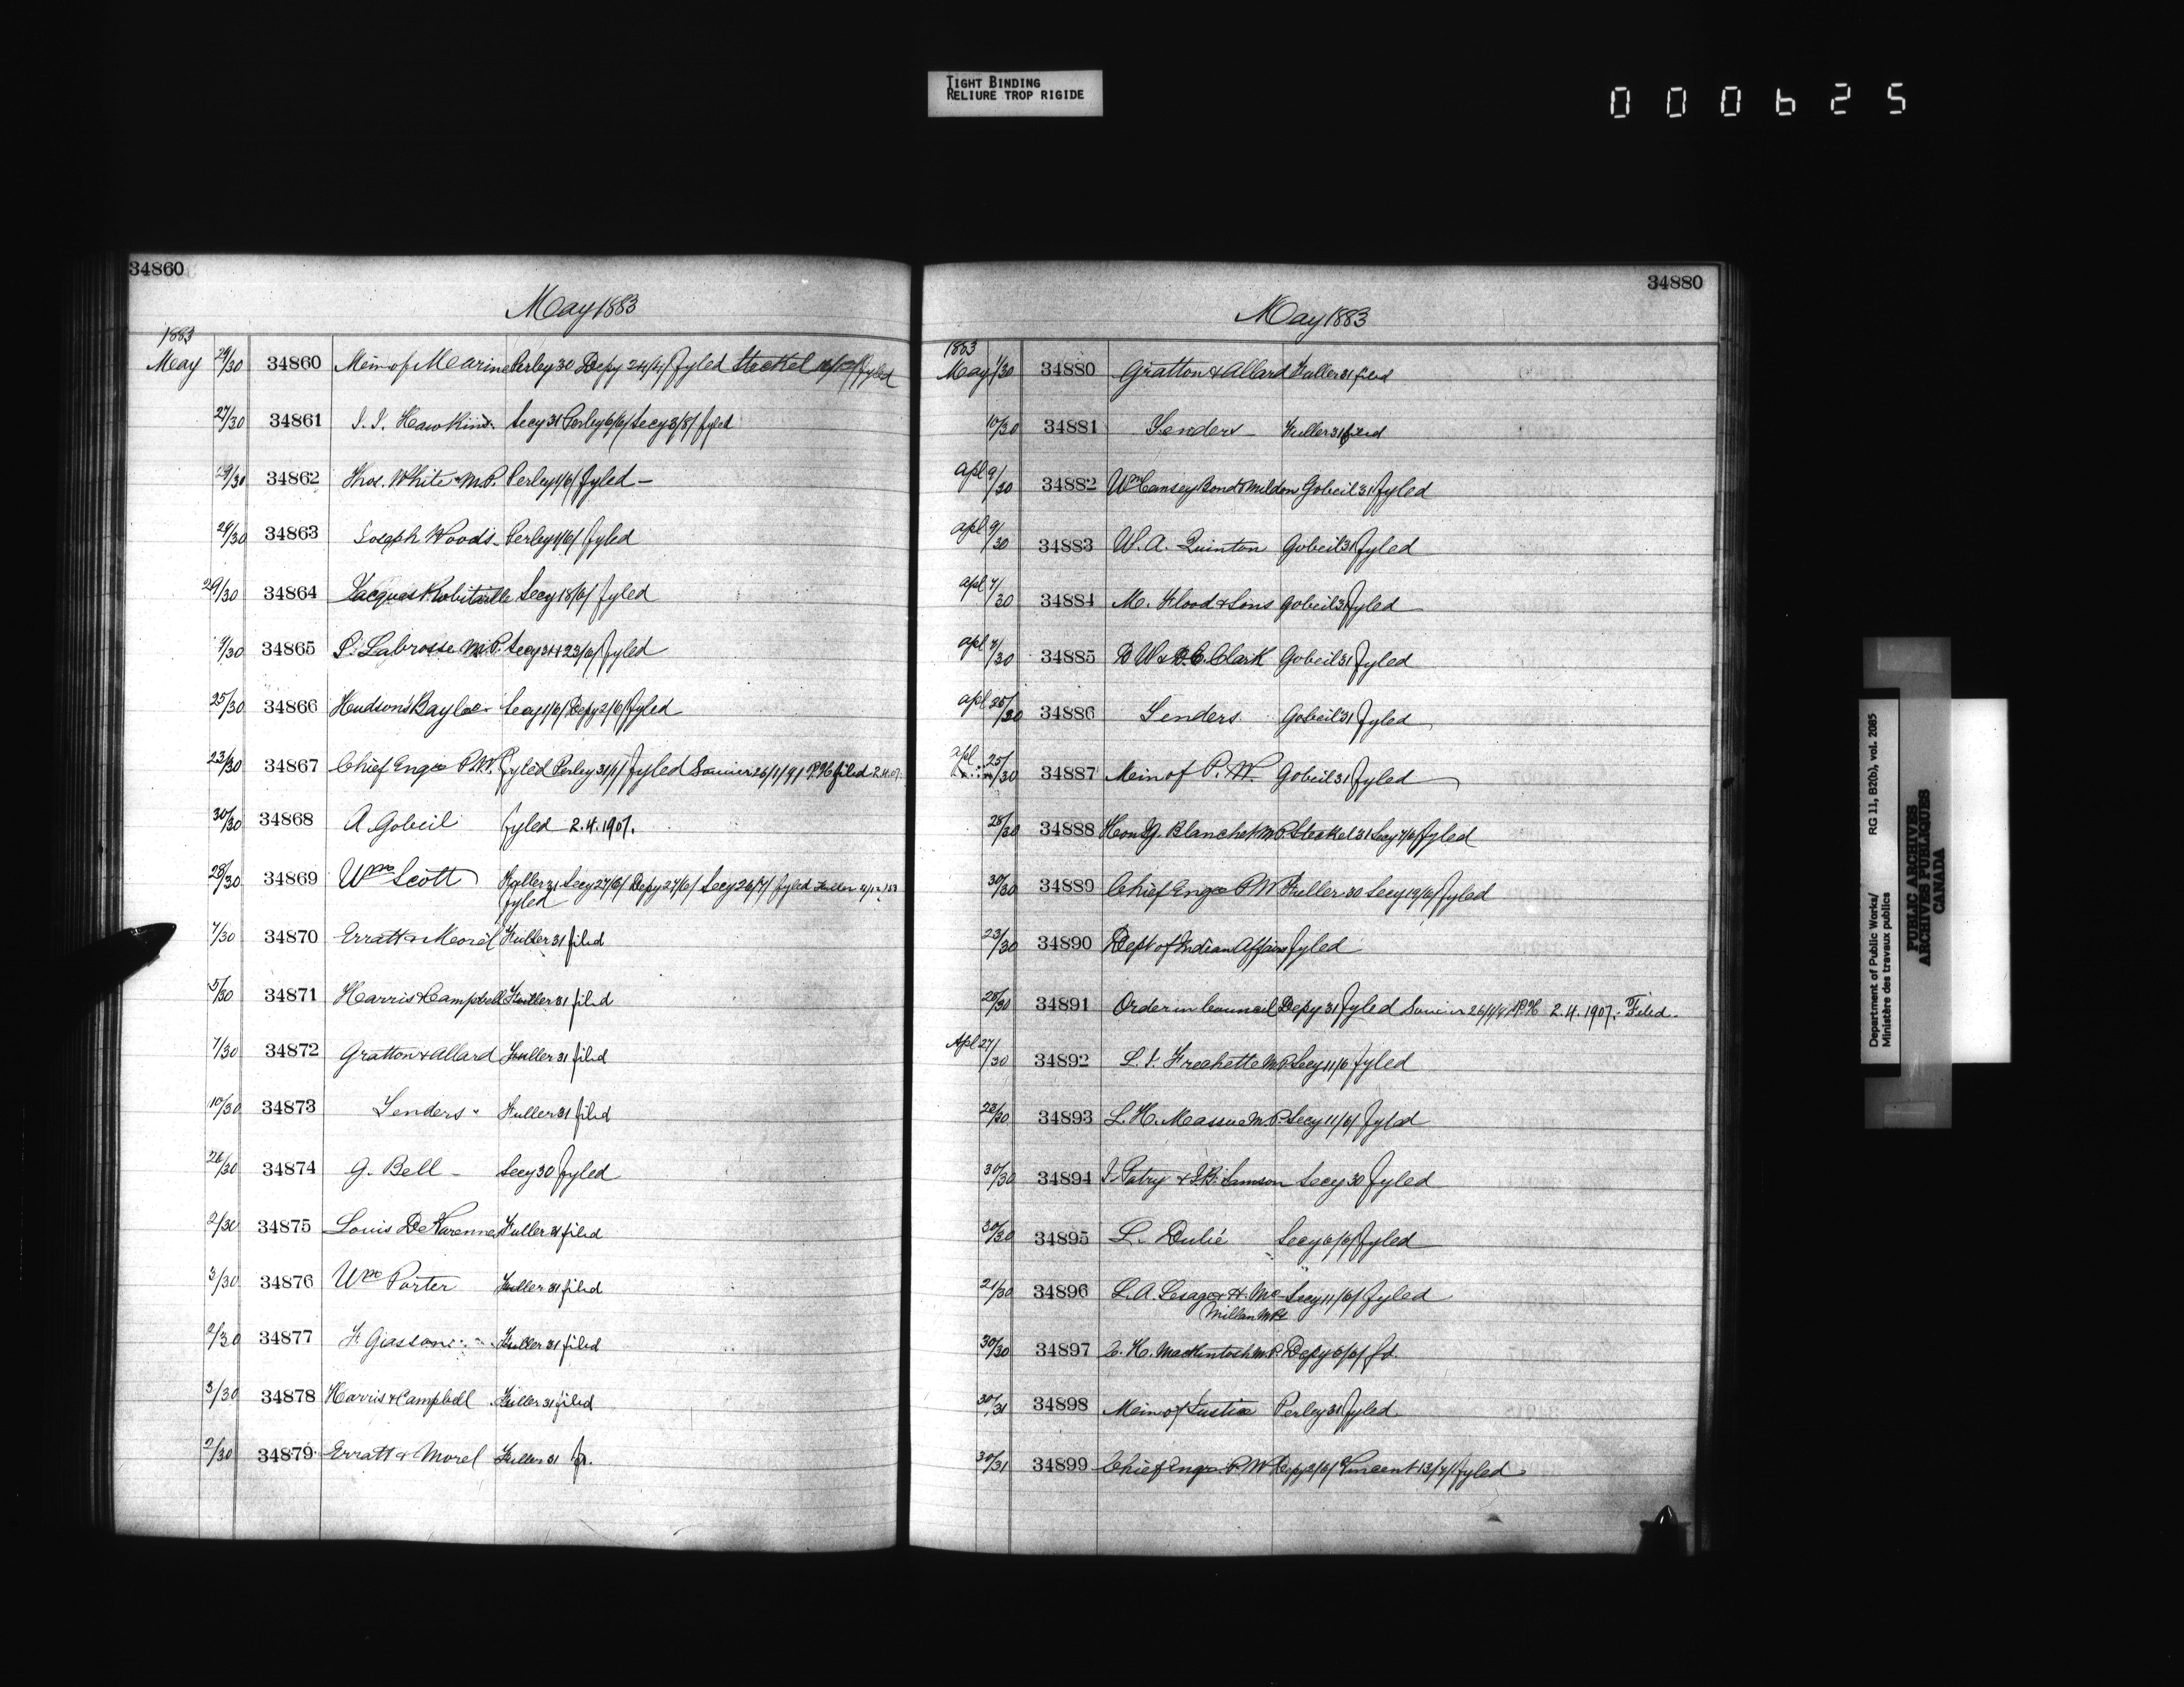 TIGHT BINDING
RELIURE TROP RIGIDE
000625
34860
May 1883
1883
May 29/30 34860 Min of Marine Perley 30 Depy 24/4/ fyled Steckel fyled
27/30 34861 J. J. Hawkins Secy 31 Perley 6/6/ Secy 3/8/ fyled
29/30 34862 Thos. White M.P. Perley 1/6/ fyled
29/30 34863 Joseph Woods Perley 1/6/ fyled
29/30 34864 Jacques Robitaille Secy 18/6/ fyled
9/30 34865 S. Labrosse M.P. Secy 31 + 23/6/ fyled
25/30 34866 Hudson's Bay Co. Secy 1/6/ Depy 2/6/ fyled
23/30 34867 Chief Engr P.W. fyled Perley 31/1/ fyled 26/1/91 filed 2.4.07.
30/30 34868 A Gobeil fyled 2.4.1907.
28/30 34869 Wm Scott Fuller 31 Secy 27/6/ Depy 27/6/ Secy 26/7/ fyled Fuller
fyled
7/30 34870 Erratt & Morel Fuller 31 filed
5/30 34871 Harris & Campbell Fuller 31 filed
7/30 34872 Gratton & Allard Fuller 31 filed
10/30 34873 Tenders Fuller 31 filed
26/30 34874 G. Bell Secy 30 fyled
2/30 34875 Louis De Fuller 31 filed
3/30 34876 Wm Porter Fuller 31 filed
2/30 34877 F Giasson Fuller 31 filed
3/30 34878 Harris & Campbell Fuller 31 filed
2/30 34879 Erratt & Morel Fuller 31
34880
May 1883
1883
May 1/30 34880 Gratton & Allard Fuller 31 filed
10/30 34881 Tenders Fuller 31 filed
apl 9/30 34882 Wm Causey Bond & Mildon Gobeil 31 fyled
apl 9/30 34883 W. A. Quinton Gobeil 31 fyled
apl 7/30 34884 M. Flood & Sons Gobeil 31 fyled
apl 7/30 34885 D W & D.C. Clark Gobeil 31 fyled
apl 25/30 34886 Tenders Gobeil 31 fyled
apl 25/30 34887 Min of P. W. Gobeil 31 fyled
28/30 34888 Hon J. Blanchet M.P. Steckel 31 Secy 7/6/ fyled
30/30 34889 Chief Engr P W Fuller 30 Secy 19/6/ fyled
23/30 34890 Dept of Indian Affairs fyled
28/30 34891 Order in Council Depy 31 fyled 2.4.1907. Filed.
Apl 27/30 34892 L. J. Frechette M.P. Secy 11/6 fyled
23/30 34893 L. H. Massue M.P. Secy 11/6/ fyled
30/30 34894 J. Patry & J. B. Samson Secy 30 fyled
30/30 34895 L. Dulié Secy 6/6/ fyled
21/30 34896 L. A. Lesage & H. Mc Secy 11/6/ fyled
Millan M.Ps
30/30 34897 C. H. Mackintosh M.P. Depy 6/6/ fd.
30/31 34898 Min of Justice Perley 31 fyled
30/31 34899 Chief Engr. P W Depy 2/6/ Vincent 13/7/ fyled
Department of Public Works/
Ministère des travaux publics
RG 11, B2(b), vol. 2085
PUBLIC ARCHIVES
ARCHIVES PUBLIQUES
CANADA